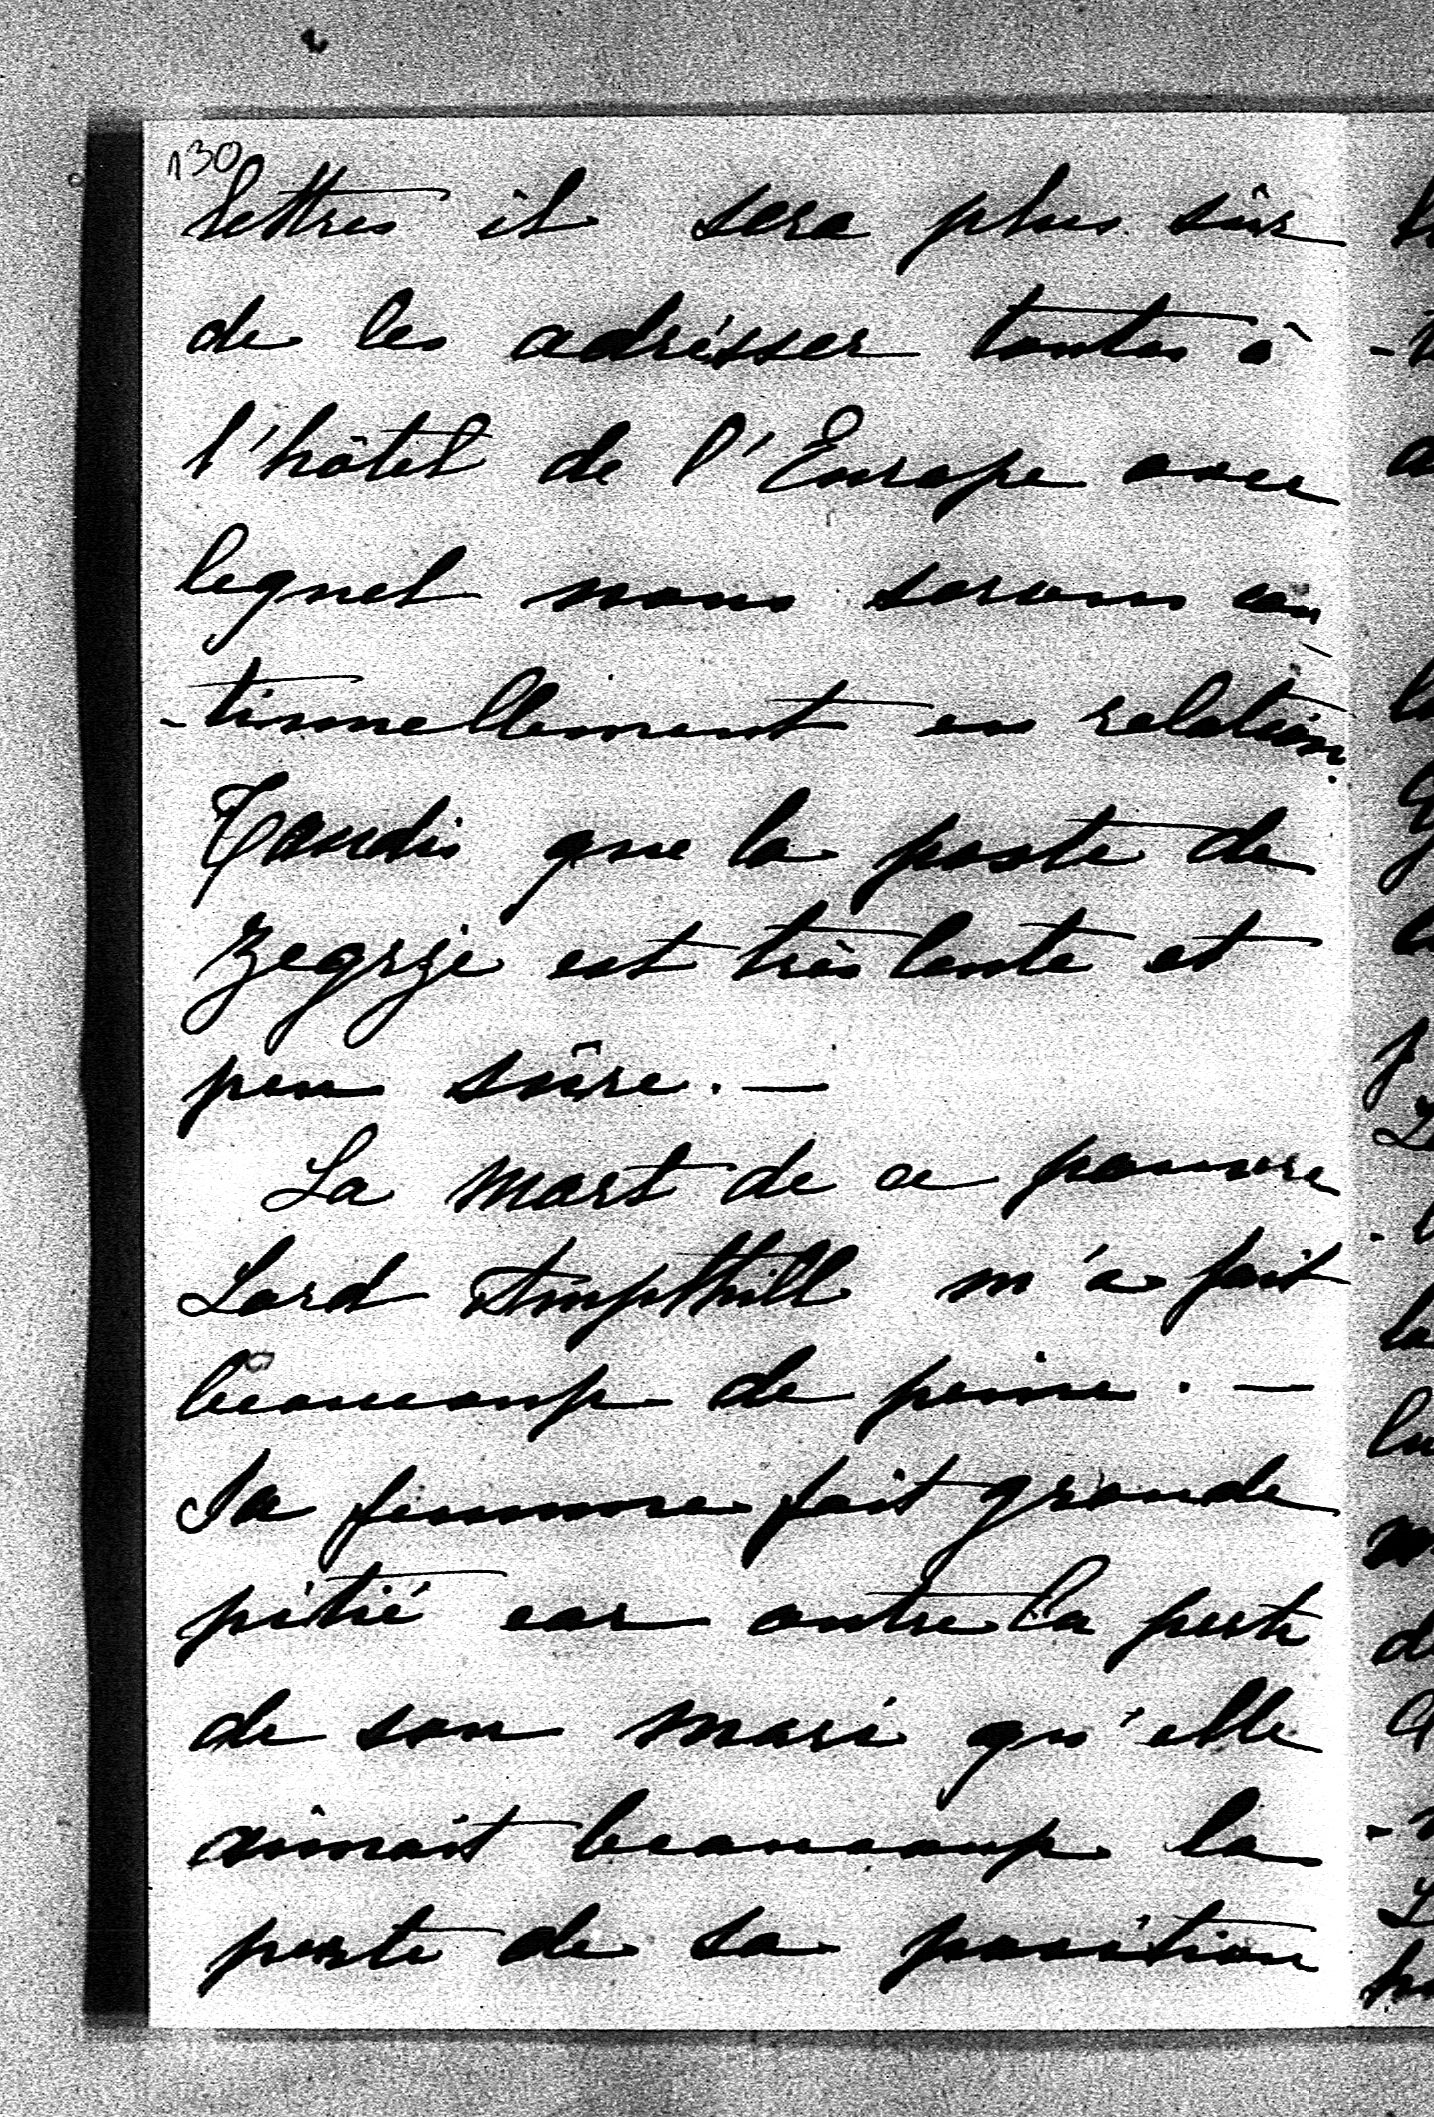 130
lettres il sera plus sûr
de les adrésser toutes à
l'hôtel de l'Europe avec
lequel nous serons con
-tinnellement en relation.
Tandis que la poste de
Zegrze est très lente et
peu sûre. —
La mort de ce pauvre
Lord Ampthill m'a fait
beaucoup de peine. —
Sa femme fait grande
pitié car outre la perte
de son mari qu'elle
aimait beaucoup la
perte de sa position